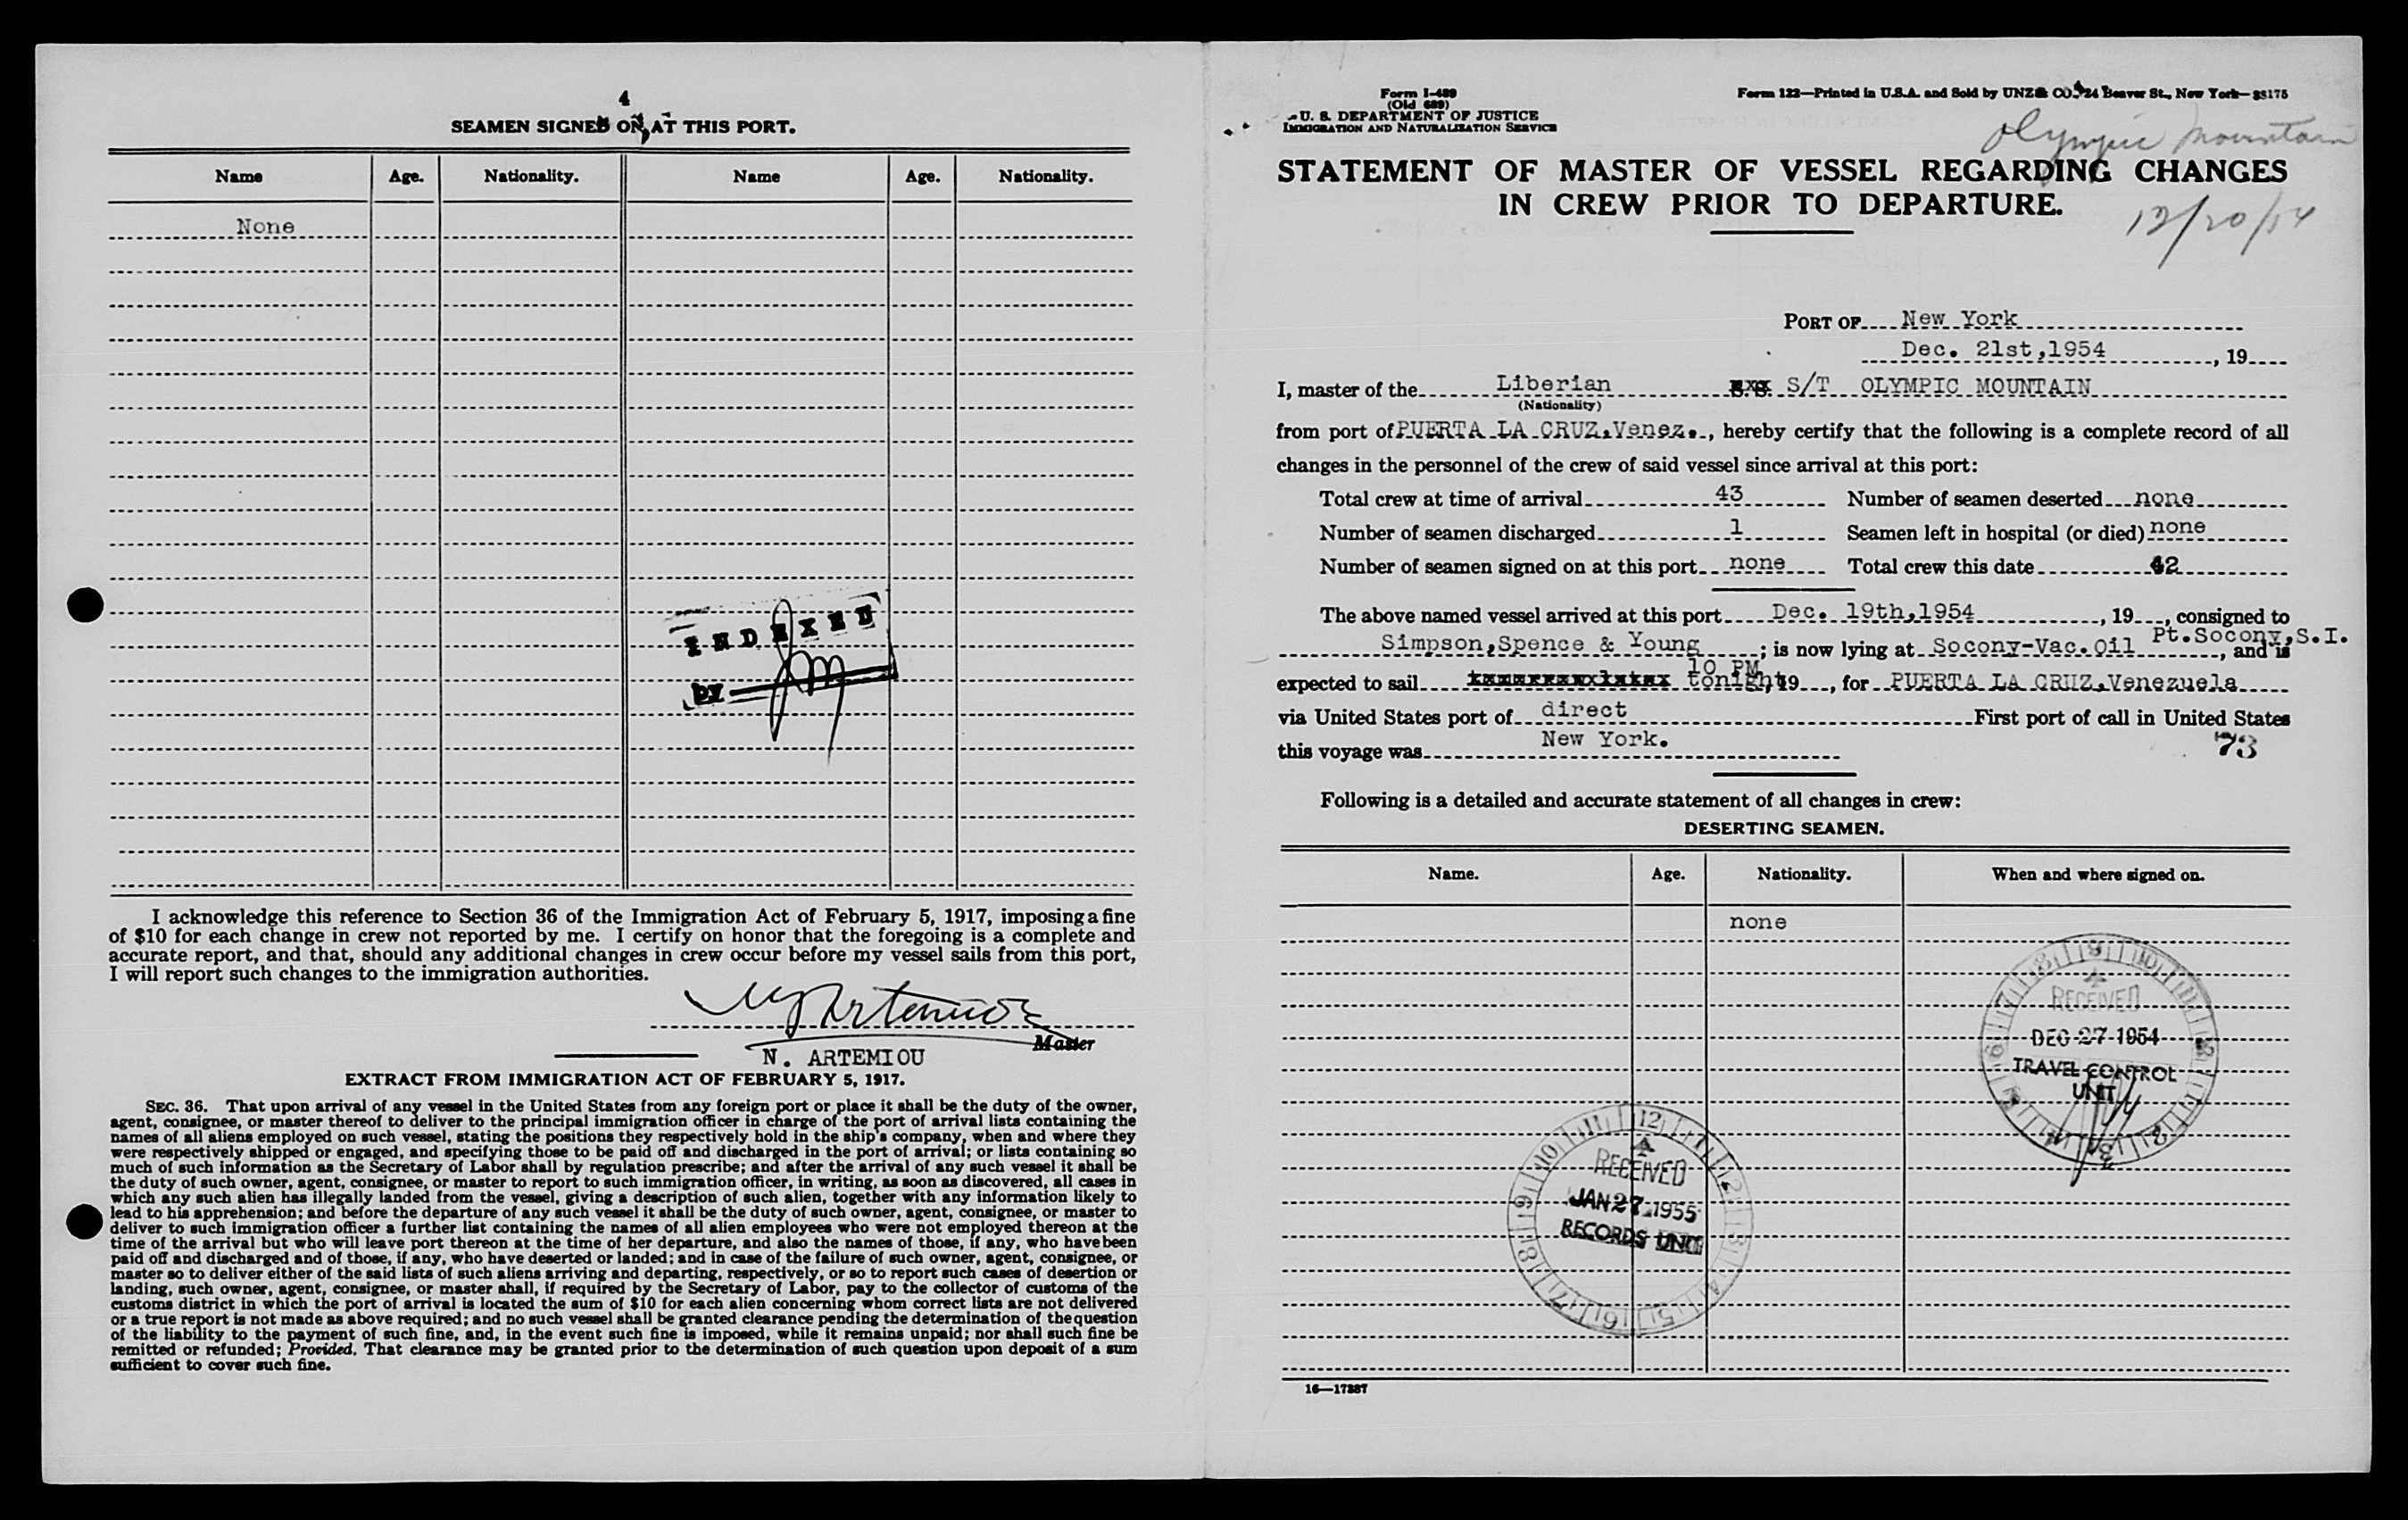 4
SEAMEN SIGNED ON AT THIS PORT.
Name Age. Nationality. Name Age. Nationality.
None
INDEXED
by
I acknowledge this reference to Section 36 of the Immigration Act of February 5, 1917, imposing a fine
of $10 for each change in crew not reported by me. I certify on honor that the foregoing is a complete and
accurate report, and that, should any additional changes in crew occur before my vessel sails from this port,
I will report such changes to the immigration authorities.
N. Artemiou
Master
N. ARTEMIOU
EXTRACT FROM IMMIGRATION ACT OF FEBRUARY 5, 1917.
SEC. 36. That upon arrival of any vessel in the United States from any foreign port or place it shall be the duty of the owner,
agent, consignee, or master thereof to deliver to the principal immigration officer in charge of the port of arrival lists containing the
names of all aliens employed on such vessel, stating the positions they respectively hold in the ship's company, when and where they
were respectively shipped or engaged, and specifying those to be paid off and discharged in the port of arrival; or lists containing so
much of such information as the Secretary of Labor shall by regulation prescribe; and after the arrival of any such vessel it shall be
the duty of such owner, agent, consignee, or master to report to such immigration officer, in writing, as soon as discovered, all cases in
which any such alien has illegally landed from the vessel, giving a description of such alien, together with any information likely to
lead to his apprehension; and before the departure of any such vessel it shall be the duty of such owner, agent, consignee, or master to
deliver to such immigration officer a further list containing the names of all alien employees who were not employed thereon at the
time of the arrival but who will leave port thereon at the time of her departure, and also the names of those, if any, who have been
paid off and discharged and of those, if any, who have deserted or landed; and in case of the failure of such owner, agent, consignee, or
master so to deliver either of the said lists of such aliens arriving and departing, respectively, or so to report such cases of desertion or
landing, such owner, agent, consignee, or master shall, if required by the Secretary of Labor, pay to the collector of customs of the
customs district in which the port of arrival is located the sum of $10 for each alien concerning whom correct lists are not delivered
or a true report is not made as above required; and no such vessel shall be granted clearance pending the determination of the question
of the liability to the payment of such fine, and, in the event such fine is imposed, while it remains unpaid; nor shall such fine be
remitted or refunded; Provided, That clearance may be granted prior to the determination of such question upon deposit of a sum
sufficient to cover such fine.
Form I-489
(Old 689)
U. S. DEPARTMENT OF JUSTICE
IMMIGRATION AND NATURALIZATION SERVICE
Form 122—Printed in U.S.A. and Sold by UNZ & CO., 24 Beaver St., New York—35175
Olympic Mountain
STATEMENT OF MASTER OF VESSEL REGARDING CHANGES
IN CREW PRIOR TO DEPARTURE.
12/20/54
PORT OF New York
Dec. 21st,1954, 19
I, master of the Liberian S/T OLYMPIC MOUNTAIN
(Nationality)
from port of PUERTA LA CRUZ.Venez., hereby certify that the following is a complete record of all
changes in the personnel of the crew of said vessel since arrival at this port:
Total crew at time of arrival 43 Number of seamen deserted none
Number of seamen discharged 1 Seamen left in hospital (or died) none
Number of seamen signed on at this port none Total crew this date 42
The above named vessel arrived at this port Dec. 19th,1954, 19, consigned to
Simpson,Spence & Young; is now lying at Socony-Vac.Oil Pt.Socony,S.I., and is
expected to sail 10 PM tonight, 19, for PUERTA LA CRUZ.Venezuela
via United States port of direct First port of call in United States
this voyage was New York.
73
Following is a detailed and accurate statement of all changes in crew:
DESERTING SEAMEN.
Name. Age. Nationality. When and where signed on.
none
9 10 11 12 1 2 3 4 5 6 7 8
RECEIVED
DEC 27 1954
TRAVEL CONTROL
UNIT
12 1 2 3 4 5 6 7 8 9 10 11
RECEIVED
JAN 27 1955
RECORDS UNIT
16—17287